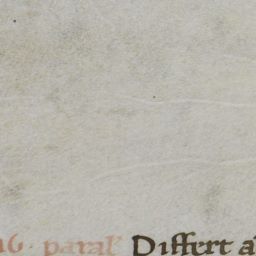 16. paral' Differt a